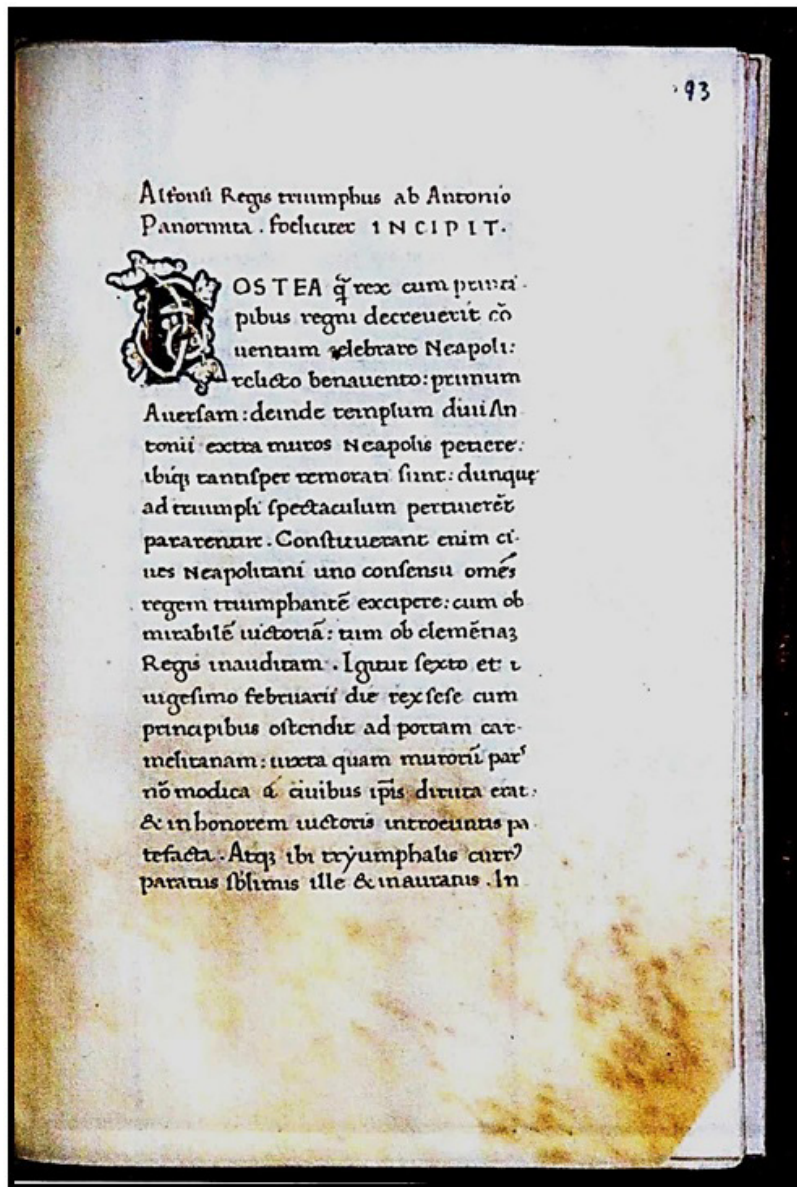 93
Alfonsi Regis triumphus ab Antonio
Panormita . foeliciter INCIPIT.
POSTEA q̃ rex cum princi-
pibus regni decreuerit cō
uentum celebrare Neapoli:
relicto benauento: primum
Auersam: deinde templum diui An
tonii extra muros Neapolis petiere:
ibiq; tantisper remorati sunt: dunque
ad triumphi spectaculum pertinerēt
pararentur. Constituerant enim ci-
ues Neapolitani uno consensu omēs
regem triumphantē excipere: cum ob
mirabilē uictoriā: tum ob clemētiaȝ
Regis inauditam. Igitur sexto et i
uigesimo februarii die rex sese cum
principibus ostendit ad portam car-
melitanam: iuxta quam murorū pars
nō modica á ciuibus ip̄is diruta erat:
& in honorem uictoris introeuntis pa
tefacta. Atq; ibi tryumphalis curr⁹
paratus s̄blimis ille & inauratus. In